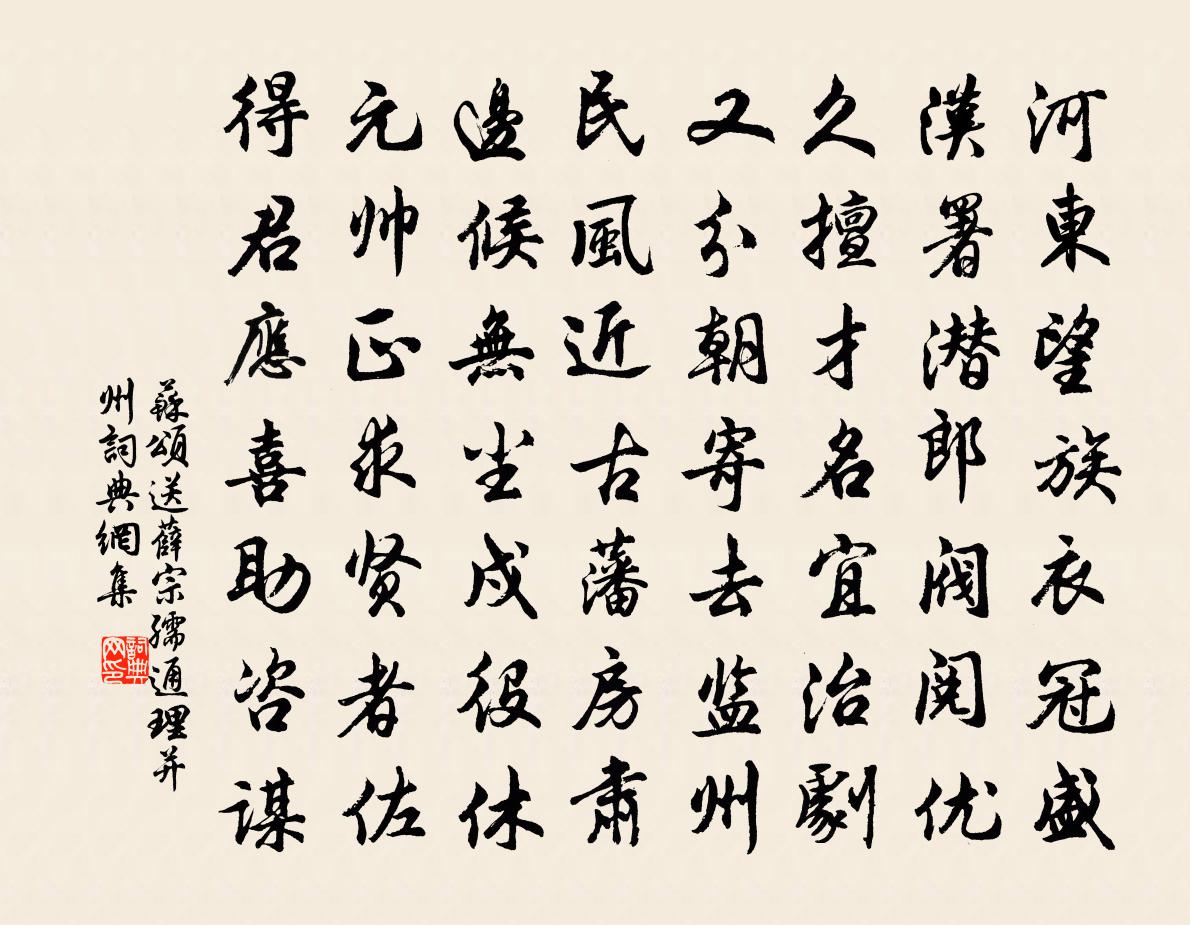 河東望族衣冠盛
漢署潜郎阀阅优
久擅才名宜治劇
又分朝寄去监州
民風近古藩房肅
邊候無尘戍役休
元帅正求贤者佐
得君應喜助咨謀
蘇頌送薛宗孺通理并
州詞典網集
詞典网印